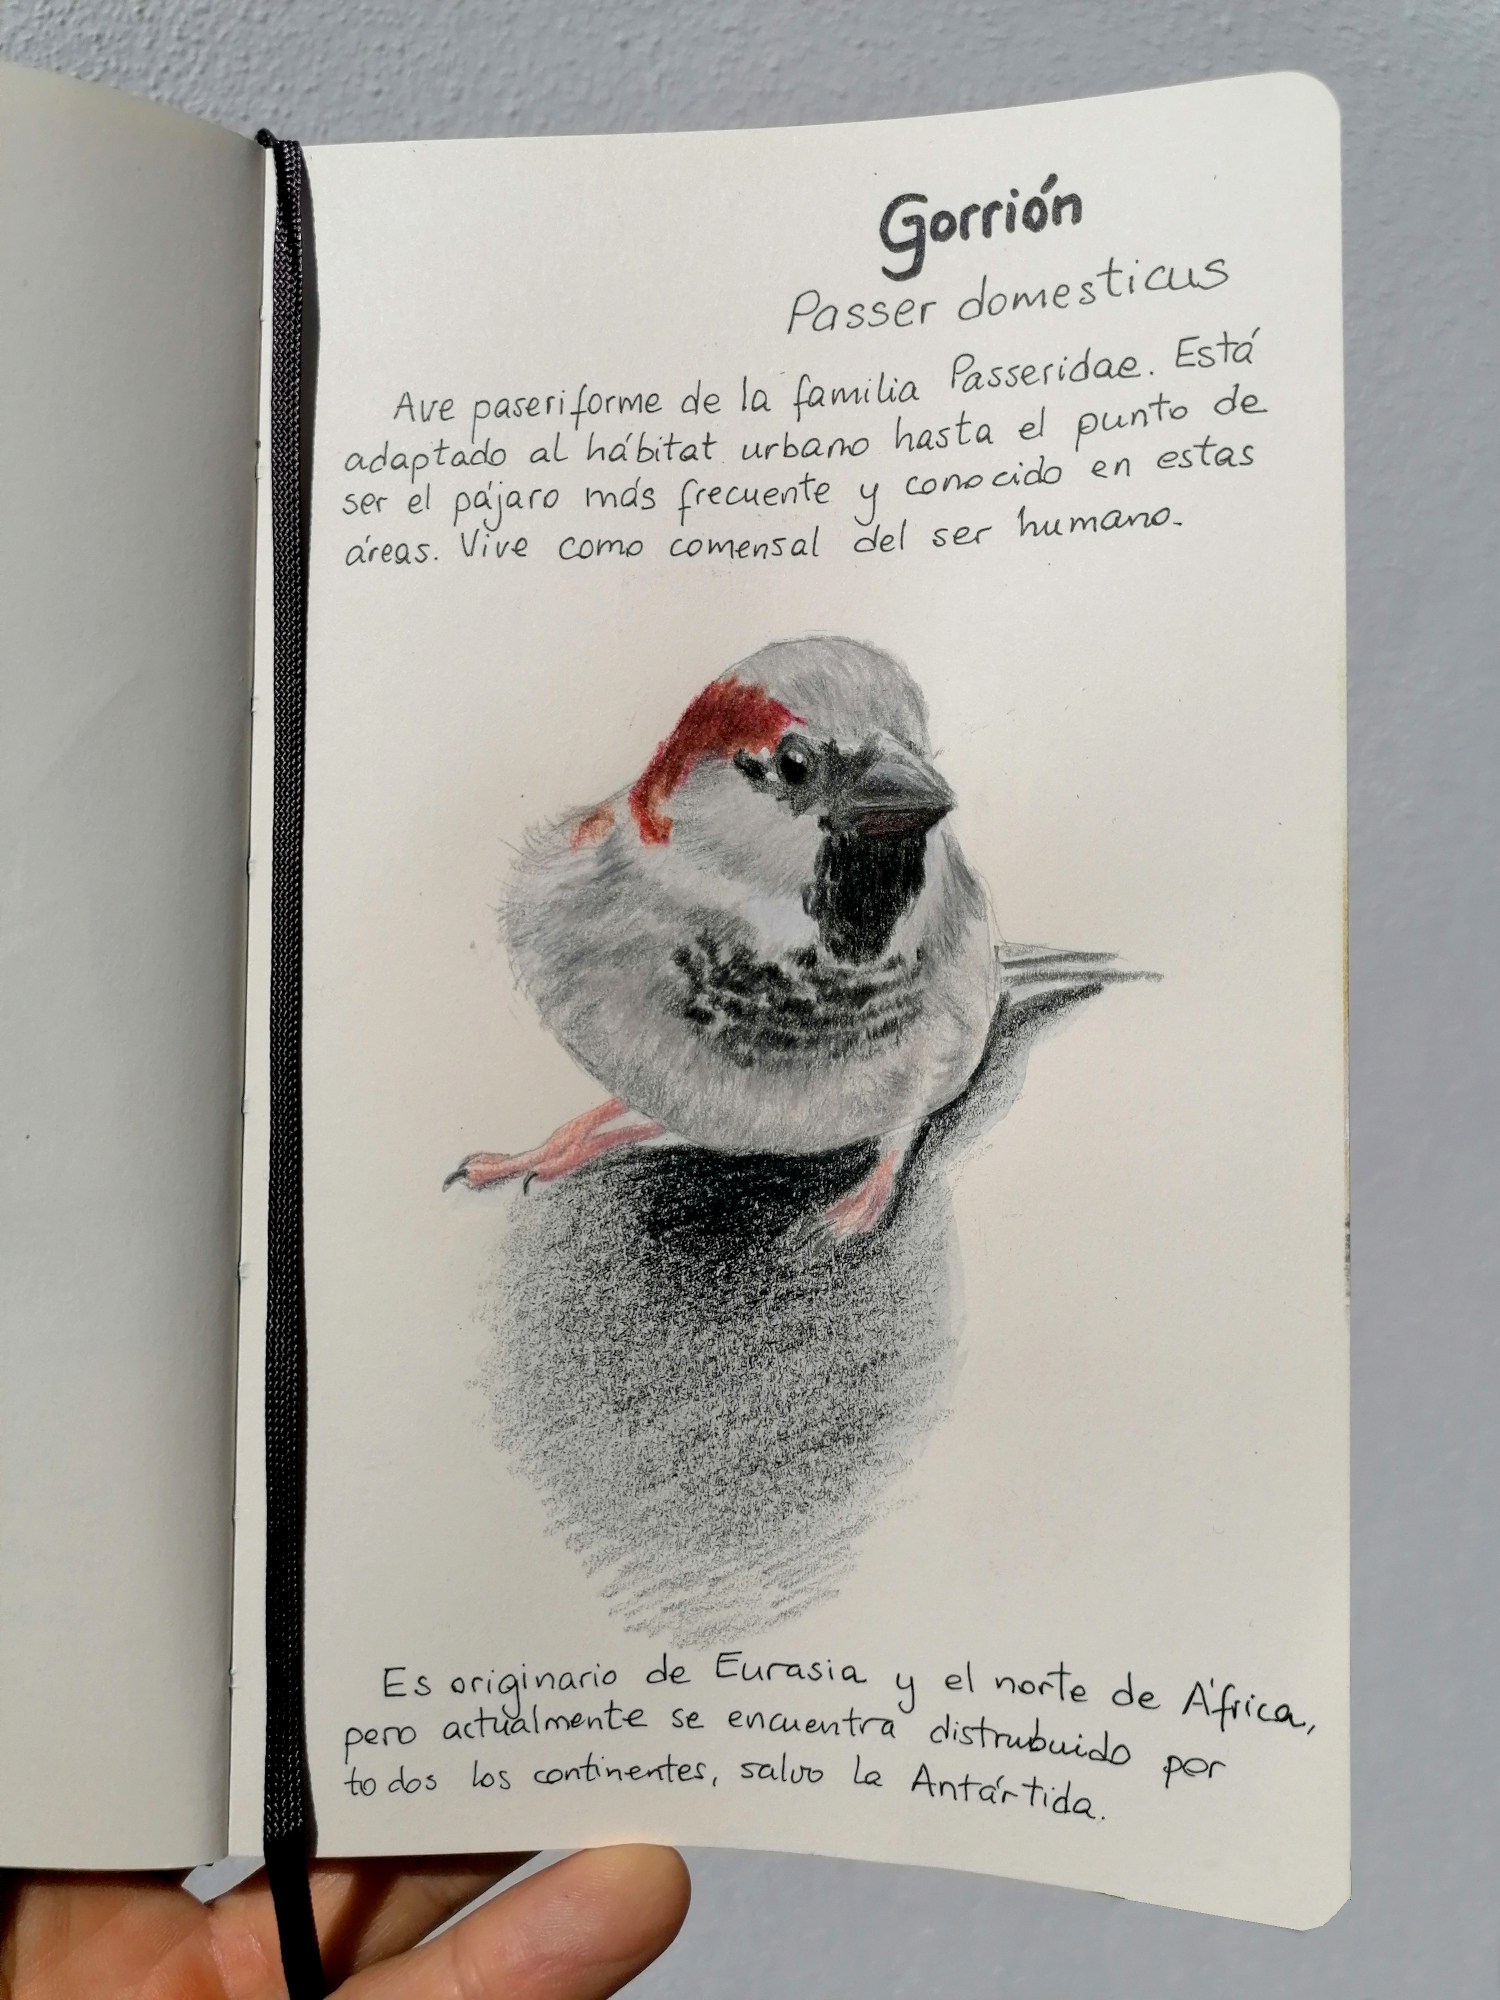 Gorrión
Passer domesticus
Ave paseriforme de la familia Passeridae. Está
adaptado al hábitat urbano hasta el punto de
ser el pájaro más frecuente y conocido en estas
áreas. Vive como comensal del ser humano.
Es originario de Eurasia y el norte de África,
pero actualmente se encuentra distrubuido por
todos los continentes, salvo la Antártida.